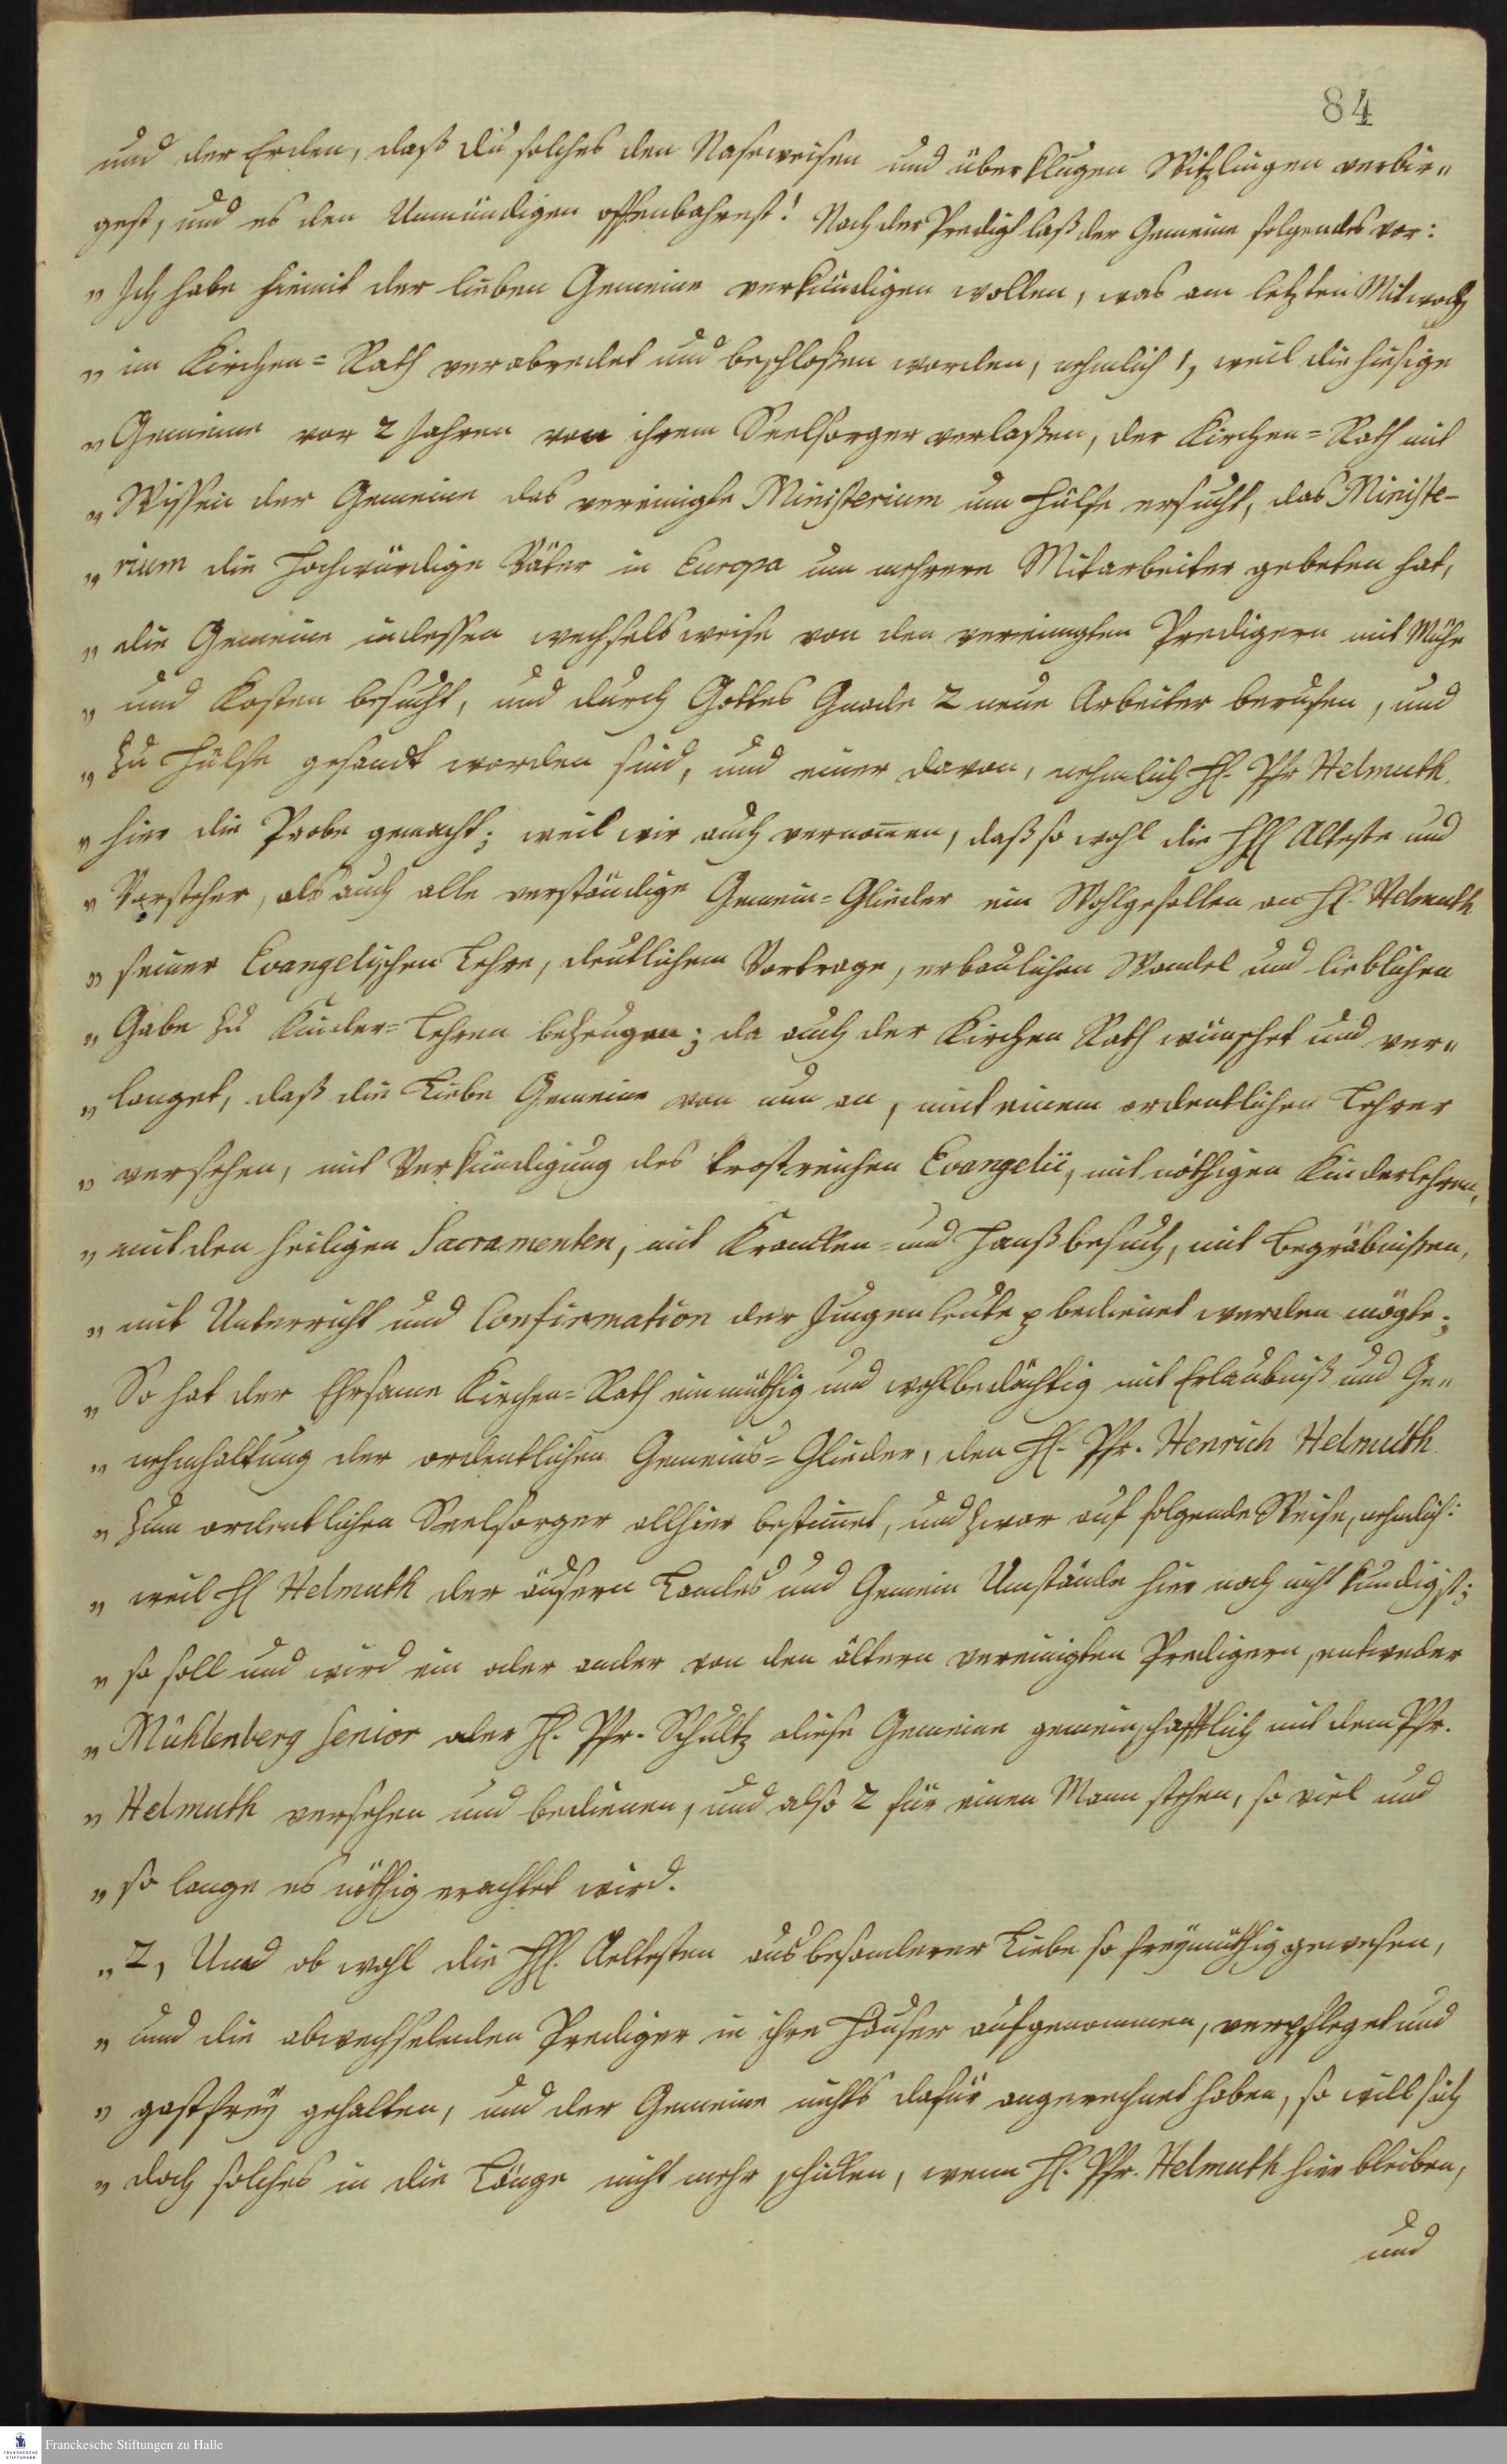 84
und der Erden, daß du solches den Naseweisen und überklugen Witzlingen verbir„
gest, und es den Unmündigen offenbahrest! Nach der Predigt laß der Gemeine folgendes vor:
„ Ich habe hiemit der lieben Gemeine verkündigen wollen, was am letzten Mitwoch
„ im Kirchen=Rath verabredet und beschloßen worden, nehmlich 1, weil die hiesige
„ Gemeine vor 2 Jahren von ihrem Seelsorger verlaßen, der Kirchen=Rath mit
„ Wissen der Gemeine das vereinigte Ministerium um Hülfe ersucht, das Ministe-
„ rium die Hochwürdige Väter in Europa um mehrere Mitarbeiter gebeten hat,
„ die Gemeine indessen wechselsweise von den vereinigten Predigern mit Mühe
„ und Kosten besucht, und durch Gottes Gnade 2 neue Arbeiter berufen, und
„ zu Hülfe gesandt worden sind, und einer davon, nehmlich H. Pfr Helmuth
„ hier die Probe gemacht; weil wir auch vernom̄en, daß so wohl die HH Alteste und
„ Vorsteher, als auch alle verständige Gemein=Glieder ein Wohlgefallen an H. Helmuth
„ seiner Evangelischen Lehre, deutlichem Vortrage, erbaulichen Wandel und lieblichen
„ Gabe zu Kinder=Lehren bezeugen; da auch der Kirchen Rath wünschet und ver„
„ langet, daß die Liebe Gemeine von nun an, mit einem ordentlichen Lehrer
„ versehen, mit Verkündigung des trostreichen Evangelii, mit nöthigen Kinderlehren,
„ mit den heiligen Sacramenten, mit Krancken= und Haußbesuch, mit Begräbnißen,
„ mit Unterricht und Confirmation der Jungen Leute p bedienet werden mögte;
„ So hat der Ehrsame Kirchen=Rath einmüthig und wohlbedächtig mit Erlaubniß und Ge„
„ nehmhaltung der ordentlichen Gemeins=Glieder, den H. Pfr. Henrich Helmuth
„ zum ordentlichen Seelsorger allhier bestim̄et, und zwar auf folgende Weise, nehmlich:
„ weil H Helmuth der äusern Landes und Gemein Umstände hier noch nicht kundig ist;
„ so soll und wird ein oder ander von den ältern vereinigten Predigern, entweder
„ Mühlenberg Senior oder H. Pfr. Schultz diese Gemeine gemeinschafftlich mit dem Pfr.
„ Helmuth versehen und bedienen, und also 2 für einen Mann stehen, so viel und
„ so lange es nöthig erachtet wird.
„ 2, Und ob wohl die HH. Aeltesten aus besonderer Liebe so freymüthig gewesen,
„ und die abwechselnden Prediger in ihre Häuser aufgenommen, verpfleget und
„ gastfrey gehalten, und der Gemeine nichts dafür angerechnet haben, so will sich
„ doch solches in die Länge nicht mehr schicken, wenn H. Pfr. Helmuth hier bleiben,
und
Franckesche Stiftungen zu Halle